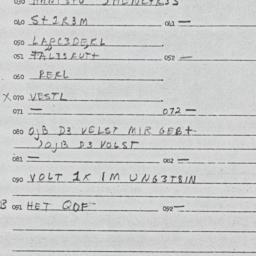 040 St1R3M 041 —
050 LAPC3DERL
051 FAL3SRUTT 052 —
060 PERL
X 070 VESTL
071 — 072 —
080 OJB D3 VELST MIR GEBT
OJB D3 VOLST
081 — 082 —
090 VOLT 1X IM UNG3TSIN
B 091 HET QOF 092 —